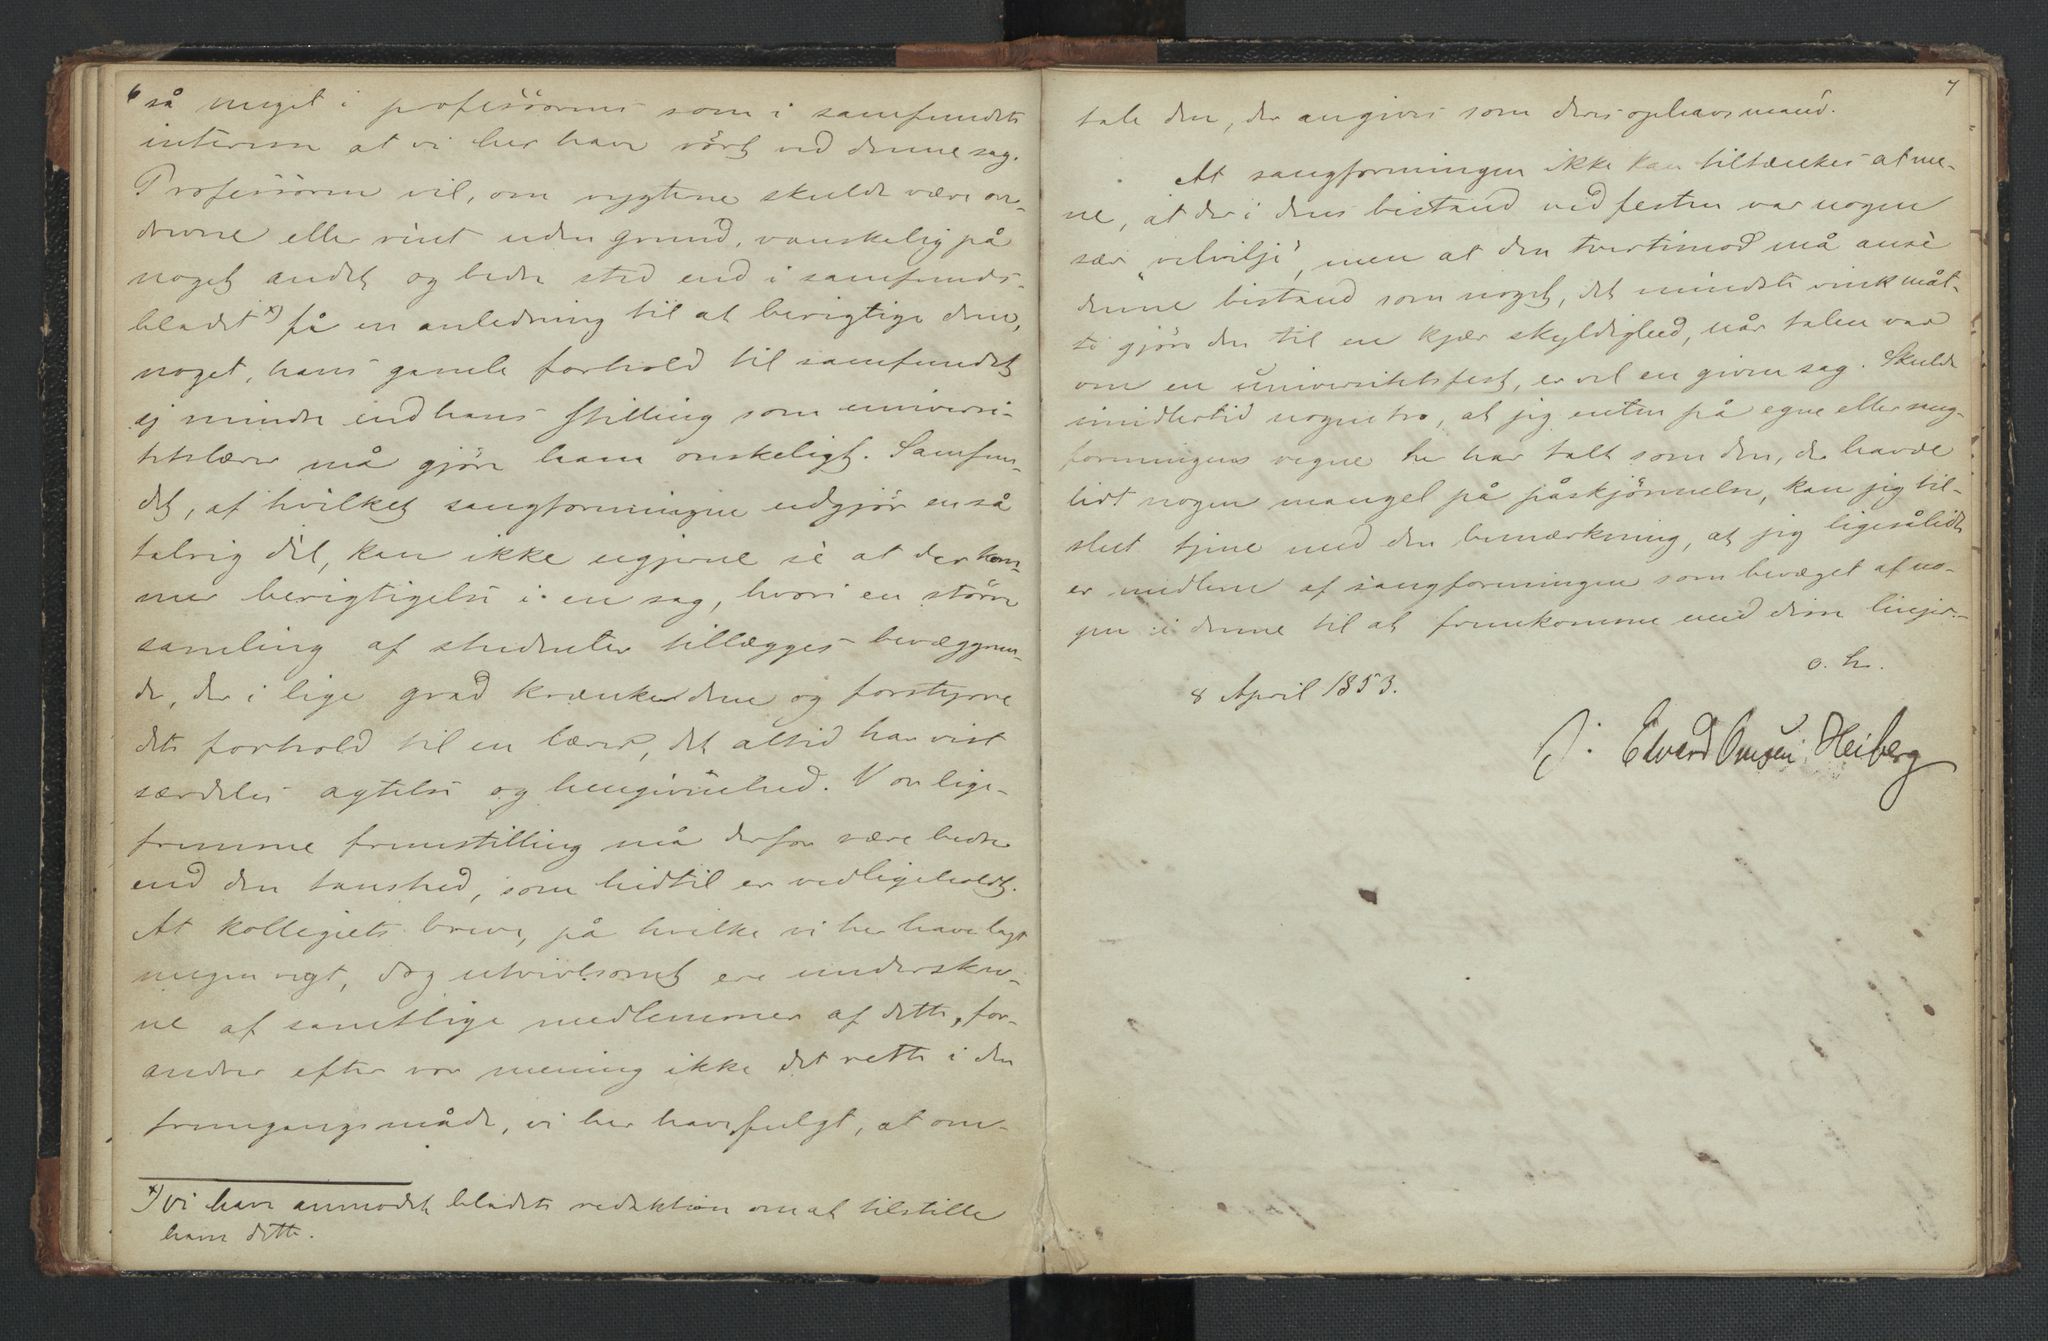 6
så meget i professorens som i samfundets
interesse at vi her have rört ved denne sag.
Professoren vil, om rygterne skulde være or-
drevne eller rent uden grund, vanskelig på
noget andet og bedre sted end i samfunds-
bladet x) få en anledning til at berigtige dem,
noget, hans gamle forhold til samfundet
ej mindre end hans stilling som universi-
tetslærer må gjöre ham onskeligt. Samfun-
det, af hvilket sangforeningen udgjör en så
talrig del, kan ikke ugjerne se at der kom-
mer berigtigelse i en sag, hvori en större
samling af studenter tillægges bevæggrun-
de, der i lige grad krænke dem og forstyrre
dets forhold til en lærer, det altid har vist
særdeles agtelse og hengivenhed. Vor lige-
fremme fremstilling må derfor være bedre
end den taushed, som hidtil er vedligeholdt.
At kollegiets breve, på hvilke vi her have lagt
megen vegt, dog utvivlsomt ere underskre-
ne af samtlige medlemmer af dette, for-
andrer efter vor mening ikke det rette i den
fremgangsmåde, vi her have fulgt, at om-
x) Vi have anmodet bladets redaktion om at tilstille
ham dette.
7
tale den, der angives som deres ophavsmand.
At sangforeningen ikke kan tiltænkes at me-
ne, at der i dens bistand ved festen var nogen
sær "velvilje", men at den tvertimod må anse
denne bistand som noget, det mindste vink måt-
te gjöre den til en kjær skyldighed, når talen var
om en universitetsfest, er vel en given sag. Skulde
imidlertid nogen tro, at jeg enten på egne eller sang-
foreningens vegne her har talt som den, der havde
lidt nogen mangel på påskjönnelse, kan jeg til-
slut tjene med den bemærkning, at jeg ligesålidt
er medlem af sangforeningen som bevæget af no-
gen i denne til at fremkomme med disse linjer.
o. h.
8 April 1853.
J. Edvard Omsen Heiberg